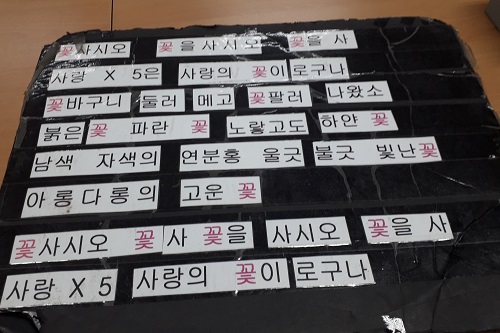 꽃사시오 꽃을사시오 꽃을 사
사랑 X 5은 사랑의 꽃이로구나
꽃바구니 둘러 메고 꽃팔러 나왔소
붉은 꽃 파란 꽃 노랗고도 하얀 꽃
남색 자색의 연분홍 울긋 불긋 빛난꽃
아롱다롱의 고운 꽃
꽃사시오 꽃사 꽃을 사시오 꽃을 사
사랑 X 5 사랑의 꽃이로구나